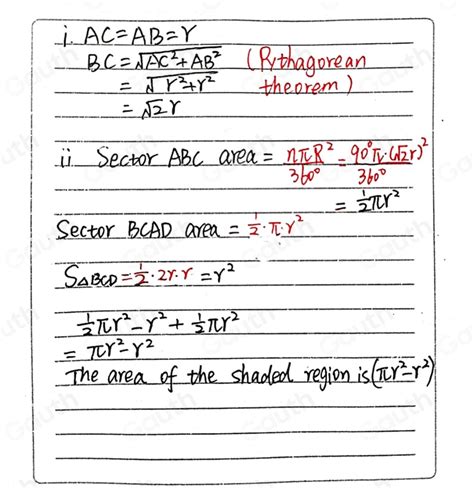 i. AC=AB=r
BC=√AC²+AB² (Pythagorean
=√r²+r² theorem)
=√2r
ii Sector ABC area = nπR²/360° = 90°π·(√2r)²/360°
= 1/2πr²
Sector BCAD area = 1/2·π·r²
S△BCD=1/2·2r·r=r²
1/2πr²-r²+1/2πr²
=πr²-r²
The area of the shaded region is (πr²-r²)